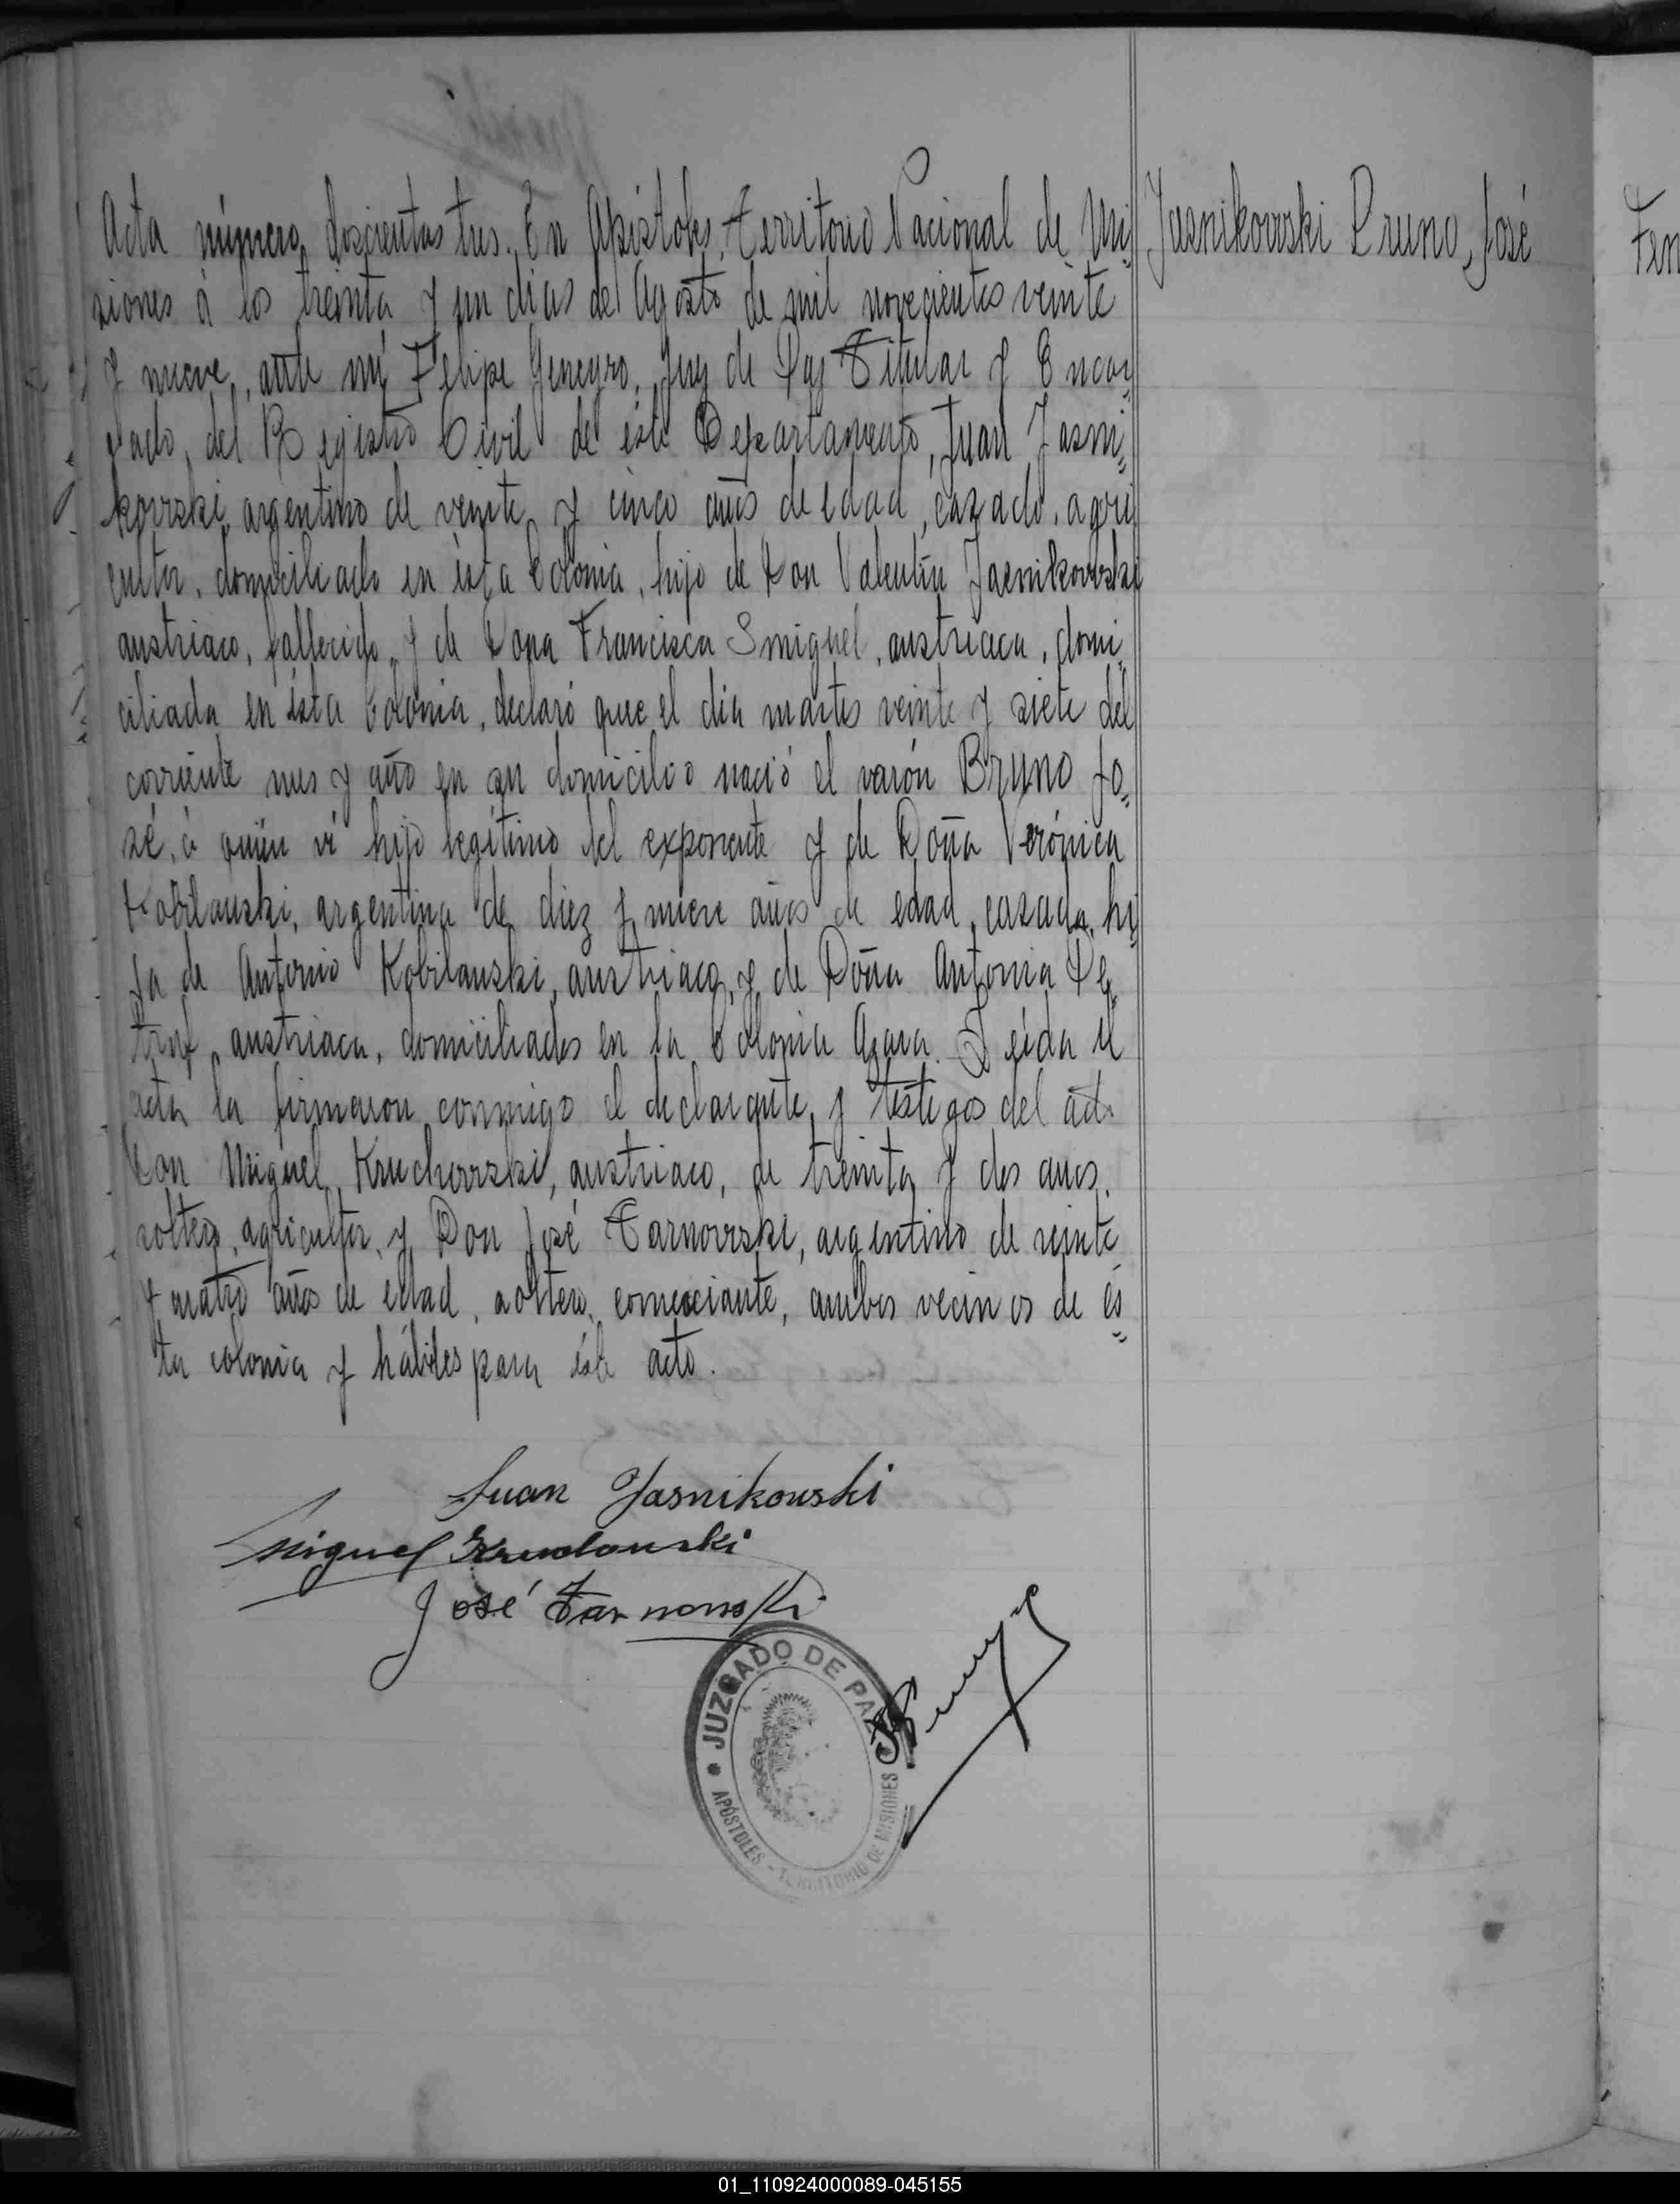 Acta número doscientas tres. En Apóstoles, Territorio Nacional de Mi=
siones á los treinta y un dias del Agosto de mil novecientos veinte
y nueve, ante mí Felipe Geneyro, Juez de Paz Titular y Encar=
gado, del Registro Civil de éste Departamento, Juan Jasni=
kowski, argentino de veinte y cinco años de edad, cazado, agri
cultor, domiciliado en ésta Colonia, hijo de Don Valentín Jasnikowski
austriaco, fallecido, y de Dona Francisca Smiguel, austriaca, domi=
ciliada en ésta Colonia, declaró que el dia martes veinte y siete del
corriente mes y año en su domicilio nació el varón Bruno Jo=
sé, á quien vi hijo legítimo del exponente y de Doña Verónica
Kobilanski, argentina de diez y nueve años de edad, casada, hi
ja de Antonio Kobilanski, austriaco, y de Doña Antonia
austriaca, domiciliados en la Colonia Azara. Leida el
acta la firmaron conmigo el declarante, y testigos del acto
Don Miguel Kruchowski, austriaco, de treinta y dos anos,
soltero, agricultor, y Don José Tarnowski, argentino de veinte
y cuatro años de edad, soltero, comerciante, ambos vecinos de és=
ta colonia y hábiles para éste acto.
Jasnikowski Bruno, José
Fen
Juan Jasnikowski
Miguel
José Tarnowski
JUZGADO DE PAZ
APÓSTOLES - TERRITORIO DE MISIONES
01_110924000089-045155